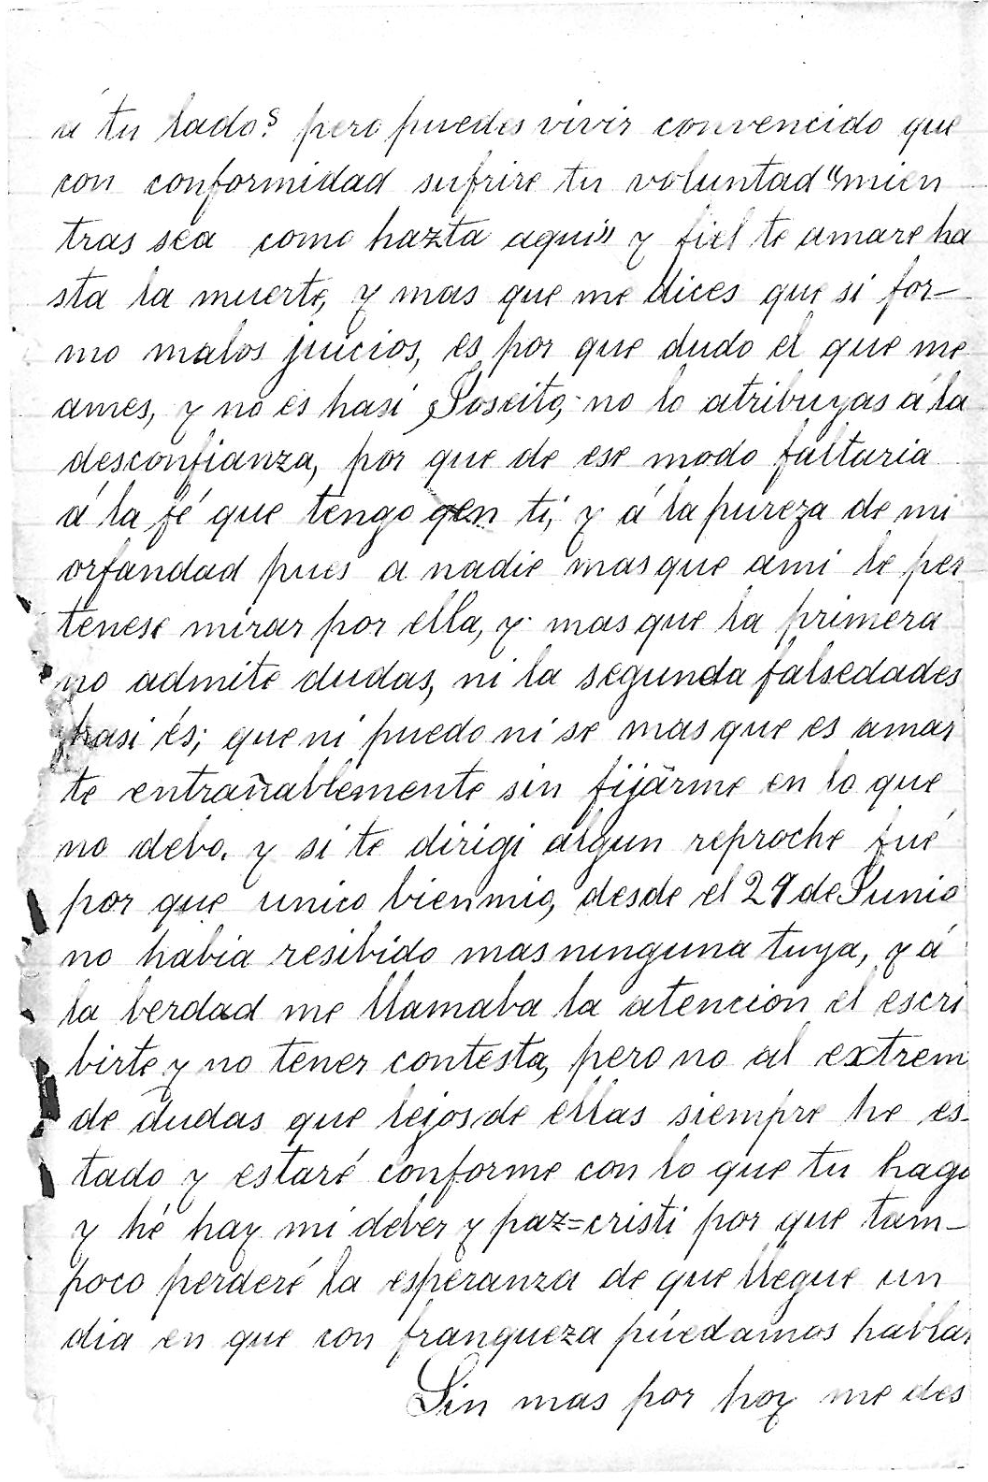 á tu lado? pero puedes vivir convencido que
con conformidad sufrire tu voluntad "mien
tras sea como hazta aqui" y fiel te amare ha
sta la muerte, y mas que me dices que si for-
mo malos juicios, es por que dudo el que me
ames, y no es hasi, Joseito, no lo atribuyas á la
desconfianza, por que de ese modo faltaria
á la fé que tengo en ti, y á la pureza de mi
orfandad pues a nadie mas que ami le per
tenese mirar por ella, y mas que la primera
no admite dudas, ni la segunda falsedades
hasi és; que ni puedo ni se mas que es amar
te entrañablemente sin fijarme en lo que
no debo. y si te dirigi algun reproche fué
por que unico bien mio, desde el 29 de Junio
no habia resibido mas ninguna tuya, y á
la berdad me llamaba la atencion el escri
birte y no tener contesta, pero no al extrem
de dudas que lejos de ellas siempre he es-
tado y estaré conforme con lo que tu hago
y hé hay mi deber y paz=cristi por que tam-
poco perderé la esperanza de que llegue un
dia en que con franqueza púedamos hablar
Sin mas por hoy me des